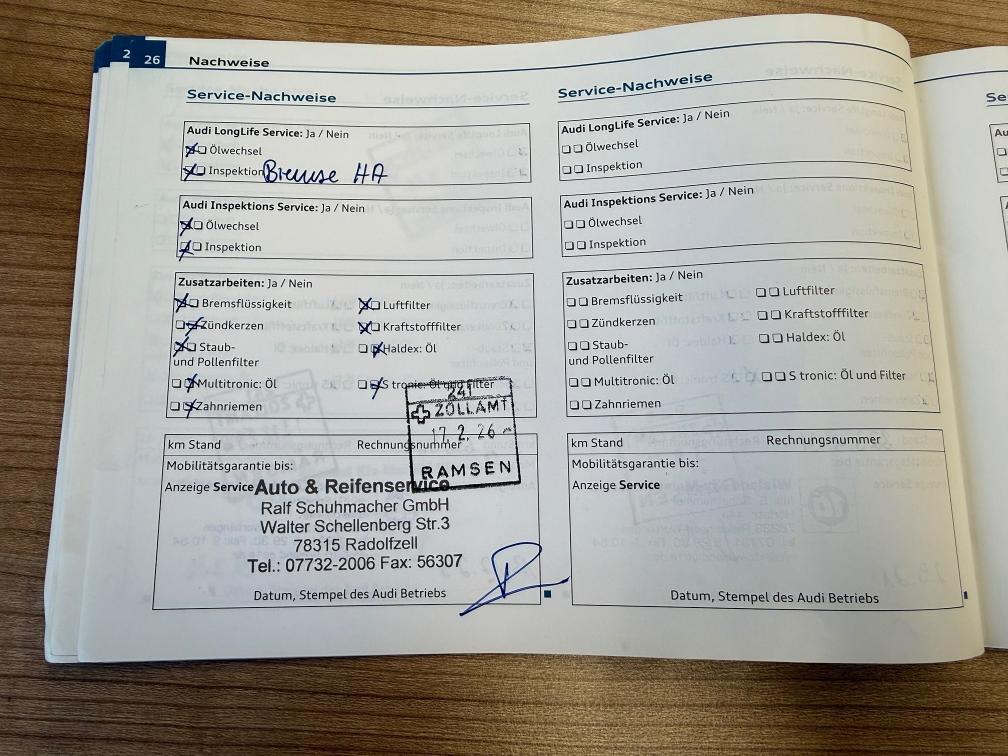 2 26 Nachweise
Service-Nachweise
Audi LongLife Service: Ja / Nein
Ölwechsel
Inspektion Bremse HA
Audi Inspektions Service: Ja / Nein
Ölwechsel
Inspektion
Zusatzarbeiten: Ja / Nein
Bremsflüssigkeit Luftfilter
Zündkerzen Kraftstofffilter
Staub- Haldex: Öl
und Pollenfilter
Multitronic: Öl S tronic: Öl und Filter
Zahnriemen
241
ZOLLAMT
17. 2. 26
RAMSEN
km Stand Rechnungsnummer
Mobilitätsgarantie bis:
Anzeige Service
Auto & Reifenservice
Ralf Schuhmacher GmbH
Walter Schellenberg Str.3
78315 Radolfzell
Tel.: 07732-2006 Fax: 56307
Datum, Stempel des Audi Betriebs
Service-Nachweise
Audi LongLife Service: Ja / Nein
Ölwechsel
Inspektion
Audi Inspektions Service: Ja / Nein
Ölwechsel
Inspektion
Zusatzarbeiten: Ja / Nein
Bremsflüssigkeit Luftfilter
Zündkerzen Kraftstofffilter
Staub- Haldex: Öl
und Pollenfilter
Multitronic: Öl S tronic: Öl und Filter
Zahnriemen
km Stand Rechnungsnummer
Mobilitätsgarantie bis:
Anzeige Service
Datum, Stempel des Audi Betriebs
Se
Au